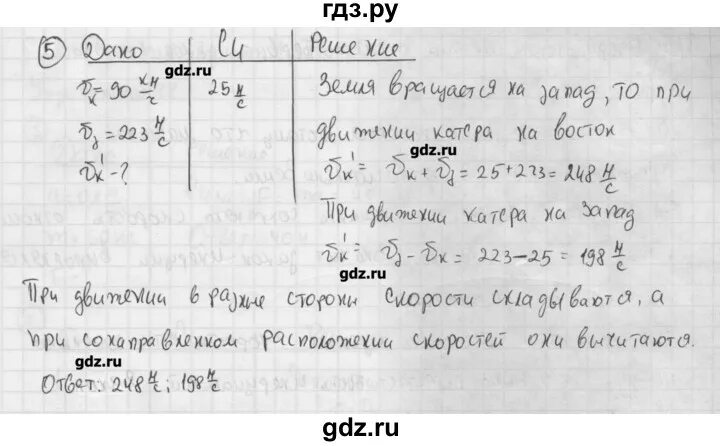 гдз.ру
⑤ Дано СИ Решение
gdz.ru
𝜗к = 90 км/ч 25 м/с Земля вращается на запад, то при
𝜗з = 223 м/с движении катера на восток
gdz.ru
𝜗к' - ? 𝜗к' = 𝜗к + 𝜗з = 25 + 223 = 248 м/с
При движении катера на запад
𝜗к' = 𝜗з - 𝜗к = 223 - 25 = 198 м/с
gdz.ru
При движении в разные стороны скорости складываются, а
при сонаправленном расположении скоростей они вычитаются.
gdz.ru
Ответ: 248 м/с; 198 м/с
gdz.ru